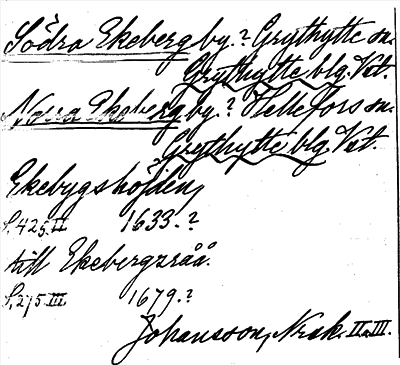 Södra Ekeberg by.? Grythytte sn.
Grythytte blg. Vst.
Norra Ekeberg by.? Hellefors sn.
Grythytte blg. Vst.
Ekebygshöjden,
S. 425 II 1633.?
till Ekebergsråå.
S. 275 III 1679.?
Johansson, Norak. II o. III.